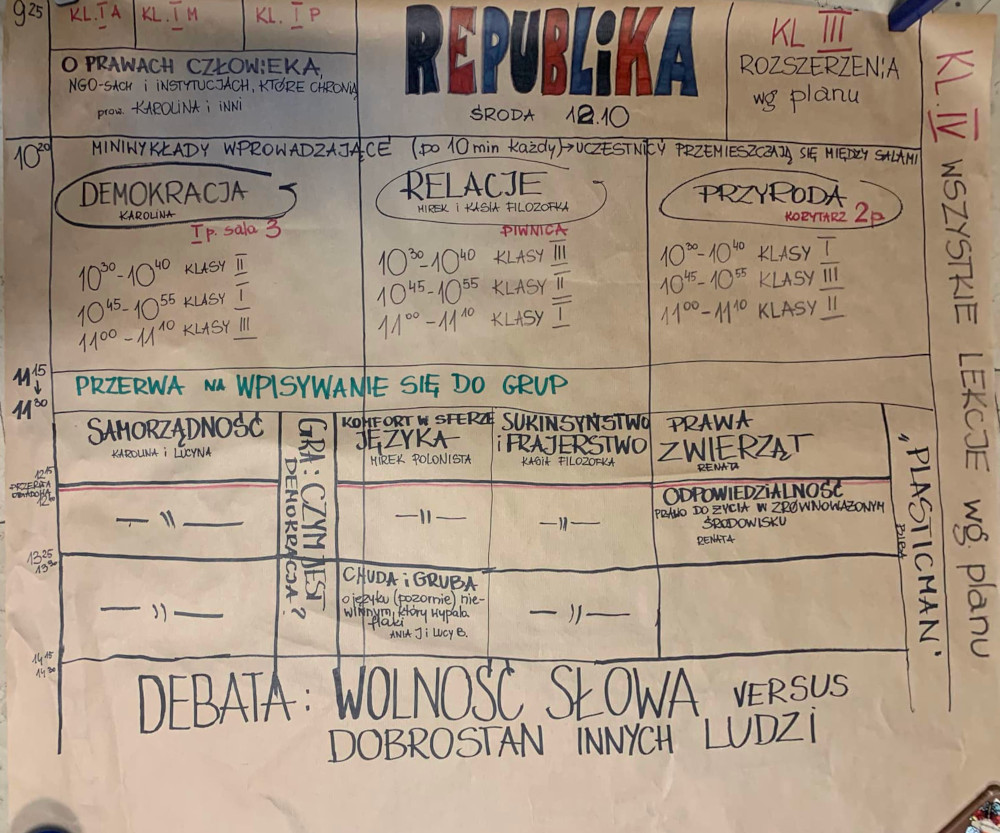 9 25
KL. I A
KL. I M
KL. I P
O PRAWACH CZŁOWIEKA,
NGO-SACH i INSTYTUCJACH, KTÓRE CHRONIĄ
prow. KAROLINA i INNI
REPUBLIKA
ŚRODA 12.10
KL III
ROZSZERZENIA
wg planu
KL. IV WSZYSTKIE LEKCJE wg. planu
10 20
MINIWYKŁADY WPROWADZAJĄCE (po 10 min każdy) → UCZESTNICY PRZEMIESZCZAJĄ SIĘ MIĘDZY SALAMI
DEMOKRACJA
KAROLINA
I p. sala 3
10 30 - 10 40 KLASY II
10 45 - 10 55 KLASY I
11 00 - 11 10 KLASY III
RELACJE
MIREK i KASIA FILOZOFKA
PIWNICA
10 30 - 10 40 KLASY III
10 45 - 10 55 KLASY II
11 00 - 11 10 KLASY I
PRZYRODA
KORYTARZ 2p
10 30 - 10 40 KLASY I
10 45 - 10 55 KLASY III
11 00 - 11 10 KLASY II
11 15
↓
11 30
PRZERWA NA WPISYWANIE SIĘ DO GRUP
SAMORZĄDNOŚĆ
KAROLINA i LUCYNA
GRA: CZYM JEST
DEMOKRACJA?
KOMFORT W SFERZE
JĘZYKA
MIREK POLONISTA
SUKINSYŃSTWO
i FRAJERSTWO
KASIA FILOZOFKA
PRAWA
ZWIERZĄT
RENATA
„PLASTICMAN"
12 15
PRZERWA
OBIADOWA
— " —
— " —
— " —
ODPOWIEDZIALNOŚĆ
PRAWO DO ŻYCIA W ZRÓWNOWAŻONYM
ŚRODOWISKU
RENATA
13 25
13 30
— " —
CHUDA i GRUBA
o języku (pozornie) nie-
winnym, który wypala
flaki
ANIA J i LUCY B.
— " —
14 15
14 30
DEBATA: WOLNOŚĆ SŁOWA VERSUS
DOBROSTAN INNYCH LUDZI